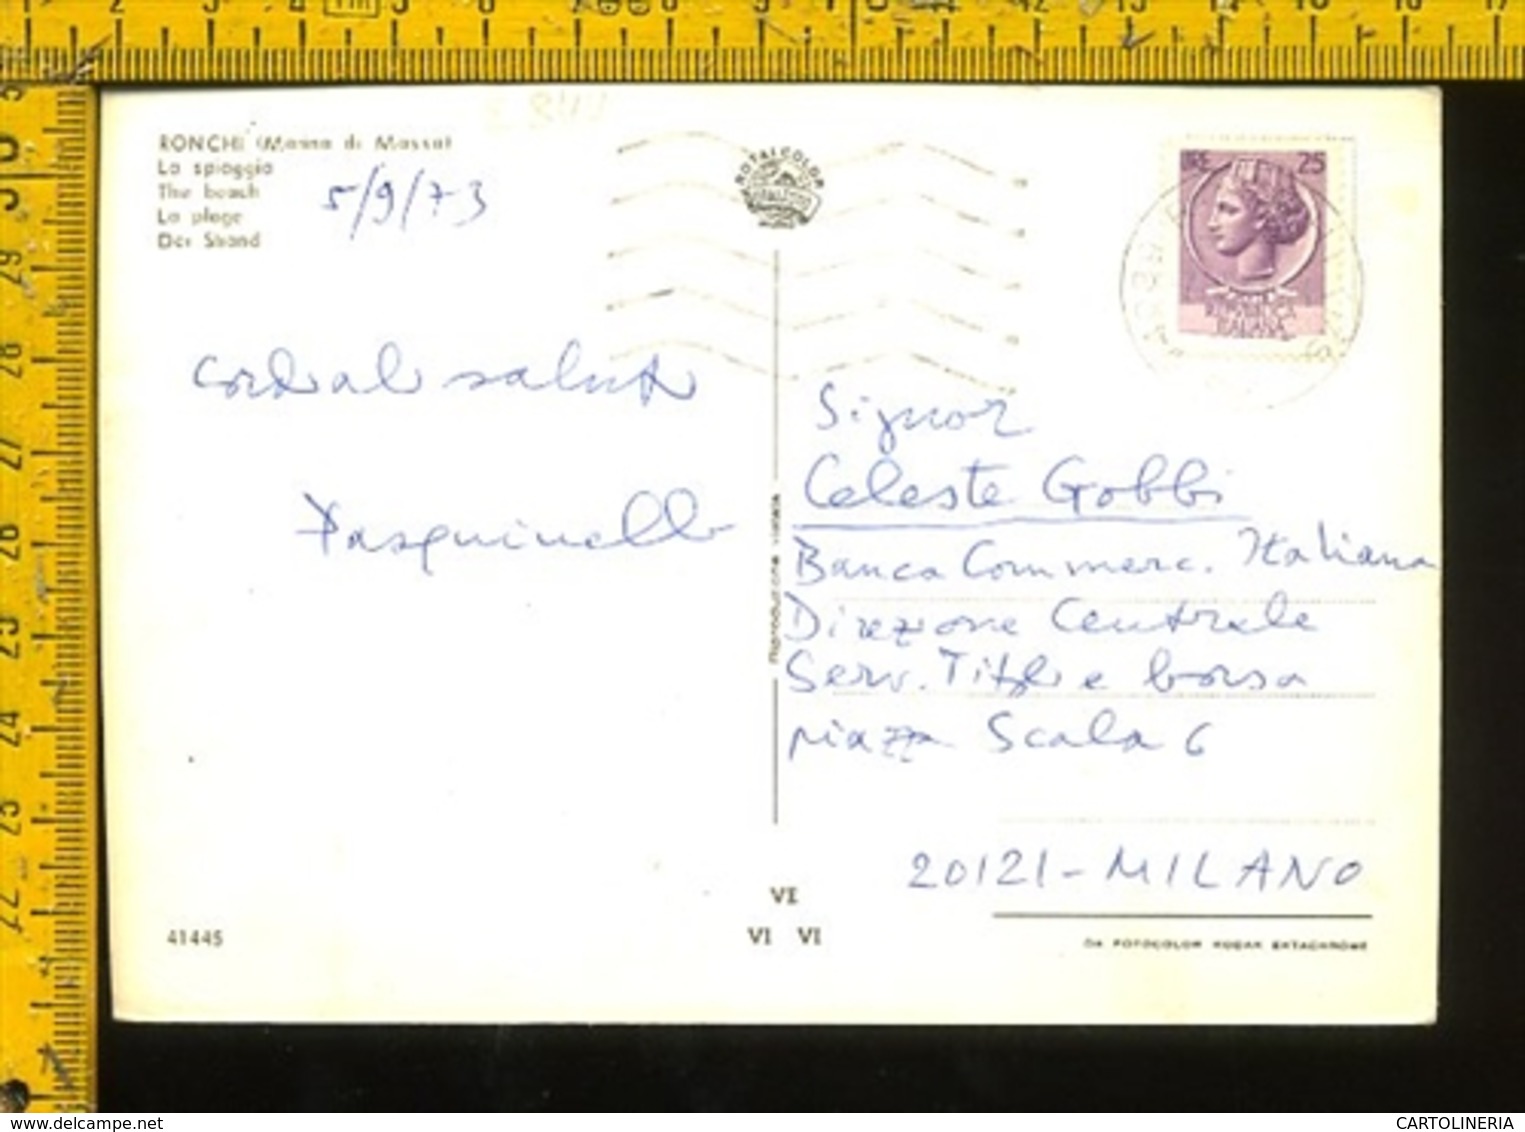 RONCHI (Marina di Massa)
La spiaggia
The beach
La plage
Der Strand
5/9/73
ROTALCOLOR
LIRE 25
REPVBBLICA
ITALIANA
cordiali saluti
Pasquinelli
Signor
Celeste Gobbi
Banca Commerc. Italiana
Direzione Centrale
Serv. Titoli e borsa
piazza Scala 6
20121 - MILANO
Riproduzione vietata
VE
VI VI
41445
DA FOTOCOLOR KODAK EKTACHROME
www.delcampe.net
CARTOLINERIA